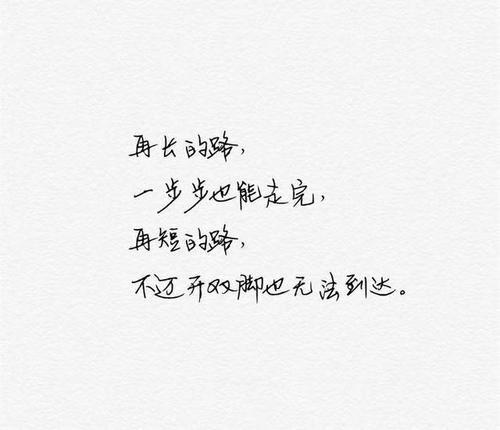 再长的路,
一步步也能走完,
再短的路,
不迈开双脚也无法到达。